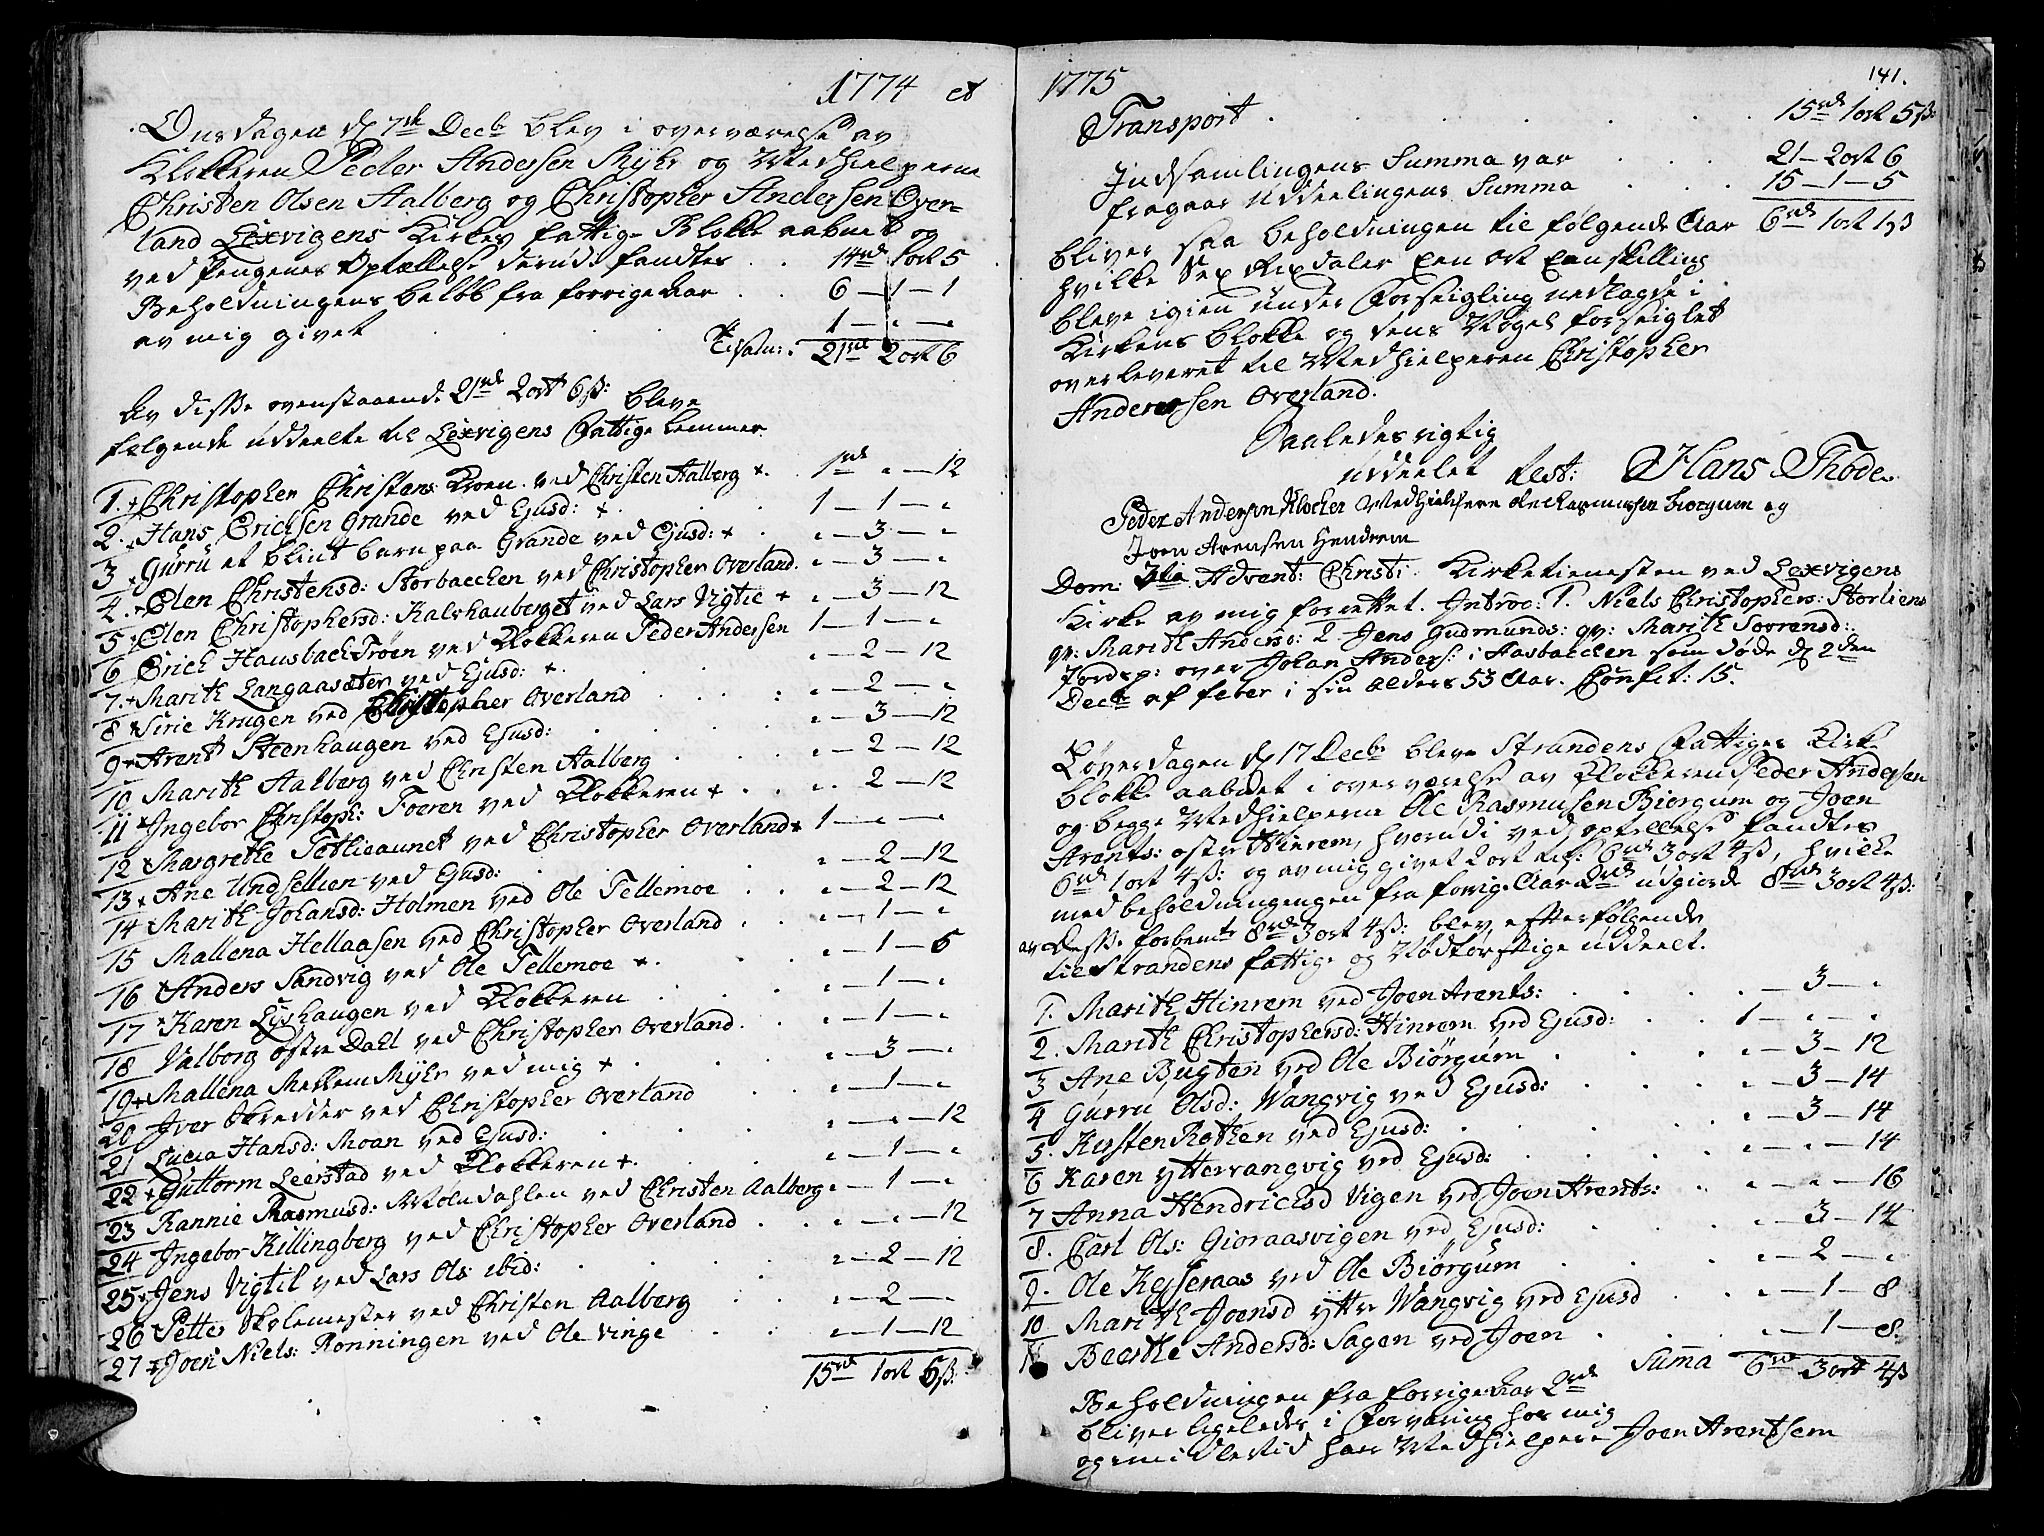 1774 et
Onsdagen d 7de Decb blev i overværelse av
Klokkeren Peder Andersen Myhr og Medhielperne
Christen Olsen Aalberg og Christopher Andersen Over-
land Lexvigens Kirkes fattige Blokke aabnet og
ved Pengenes Optællelse derudi fandtes . . 14rd 1ort 5
Beholdningens beløb fra forrige Aar . . 6 — 1 — 1
av mig givet . . . 1 — " — "
Tilsam: . 21rd 2ort 6
Av disse ovenstaaende 21rd 2ort 6ß: bleve
følgende uddeelte til Lexvigens Fattige Lemmer
1. + Christopher Christens Kroen ved Christen Aalberg +. 1rd " — 12
2. + Hans Erichsen Grande ved Ejusd: + . 1 — 1 — "
3 + Gurru et blint barn paa Grande ved Ejusd: + . " — 3 — "
4. + Elen Christensd: Storbaecken ved Christopher Overland. " — 3 — "
5 + Elen Christophersd: Kalvhauberget ved Lars Vigtil + " — 3 — 12
6 Erich Hausbach Trøen ved Klokkeren Peder Andersen 1 — 1 — "
7. + Marith Langaasæter ved Ejusd: +. " — 2 — 12
8 + Sirie Krugen ved Christopher Overland " — 2 — "
9 + Arent Steenhaugen ved Ejusd: . " — 3 — 12
10 Marith Aalberg ved Christen Aalberg . " — 2 — 12
11 + Ingebor Christoph: Foeren ved Klokkeren + . " — 2 — 12
12 + Margrethe Tetlieaunet ved Christopher Overland + 1 — " — "
13 + Ane Undsetlien ved Ejusd: . " — 2 — 12
14 + Marith Johansd: Holmen ved Ole Tellemoe . " — 2 — 12
15 Mallena Hellaasen ved Christopher Overland . " — 1 — "
16 + Anders Sandvig ved Ole Tellemoe +. " — 1 — 6
17 + Karen Lyshaugen ved Klokkeren . " — 1 — "
18 Valborg østre Dahl ved Christopher Overland . " — 1 — "
19 + Mallena Mellem Myhr ved mig + . " — 3 — "
20 Iver Skredder ved Christopher Overland " — 1 — "
21 Lucia Hansd: Moan ved Ejusd: . " — " — 12
22 + Guttorm Leerstad ved Klokkeren +. " — 1 — "
23 Rannie Rasmusd: Mølndahlen ved Christen Aalberg " — 1 — "
24 Ingebor Killingberg ved Christopher Overland . " — " — 12
25 + Jens Vigtil ved Lars Ols: ibid: . " — 2 — 12
26 + Petter Skolemester ved Christen Aalberg . " — 2 — "
27 + Joen Niels: Rønningen ved Ole Vinge . " — 1 — 12
15rd 1ort 5ß:
1775
141.
Transport . . . 15rd 1ort 5ß:
Indsamlingens Summa var . . 21 — 2ort 6
fragaar Uddeelingens Summa . . 15 — 1 — 5
bliver saa beholdningen til følgende Aar 6rd 1ort 1ß
hvilke Sex Rixdaler Een ort Een skilling
bleve igien under Forseigling nedlagde i
Kirkens blokke og dens Nøgel forseiglet
overleveret til Medhielperen Christopher
Andersen Overland.
Saaledes rigtig
uddeelet test: Hans Thode.
Peder Andersen Klocker Medhielpere Ole Rasmusen Biørgum og
Joen Arensen Hendrem
Dom: 3tia Advent: Christi. Kirketienesten ved Lexvigens
Kirke av mig forrettet. Introd: 1. Niels Christophers: Storliens
qv: Marith Andersd: 2 Jens Gudmunds: qv: Marith Sørrensd:
Jordsp: over Johan Anders: i Aasbaecken som døde d 2den
Decb af feber i sin alders 53 Aar. Confit: 15.
Løverdagen d 17 Decb bleve Strandens Fattiges Kirke
blokke aabnet i overværelse av Klokkeren Peder Andersen
og begge Medhielperne Ole Rasmusen Biørgum og Joen
Arents: østre Hinrem, hvorudi ved optællelse fandtes
6rd 1ort 4ß: og av mig givet 2ort til: 6rd 3ort 4ß, hvilke
med beholdningengen fra forrige Aar 2rd udgiorde 8rd 3ort 4ß:
av Disse forbemte 8rd 3ort 4ß: blev efterfølgende
til Strandens fattige og Nødtørftige uddeelt.
1. Marith Hinrem ved Joen Arents: . . — 3 — "
2. Marith Christophersd: Hinrem ved Ejusd: . 1 — " — "
3 Ane Bugten ved Ole Biørgum . " — 3 — 12
4 Gurru Olsd: Wangvig ved Ejusd: . " — 3 — 14
5. Kirsten Rothen ved Ejusd: . " — 3 — 14
6 Karen yttervangvig ved Ejusd: . " — " — 14
7 Anna Hendrichsd Vigen ved Joen Arents: . " — " — 16
8. Carl Ols: Gioraasvigen ved Ejusd: . " — 3 — 14
9. Ole Keiseraas ved Ole Biørgum . " — 2 — "
10 Marith Joensd yttre Wangvig ved Ejusd . " — 1 — 8
11 Beerthe Andersd: Sagen ved Joen . " — 1 — 8.
Summa 6rd 3ort 4ß
Beholdningen fra forrige Aar 2rd
bliver ligeledes i Forvaring hos mig
og imidlertid hos Medhielpere Joen Arentsem